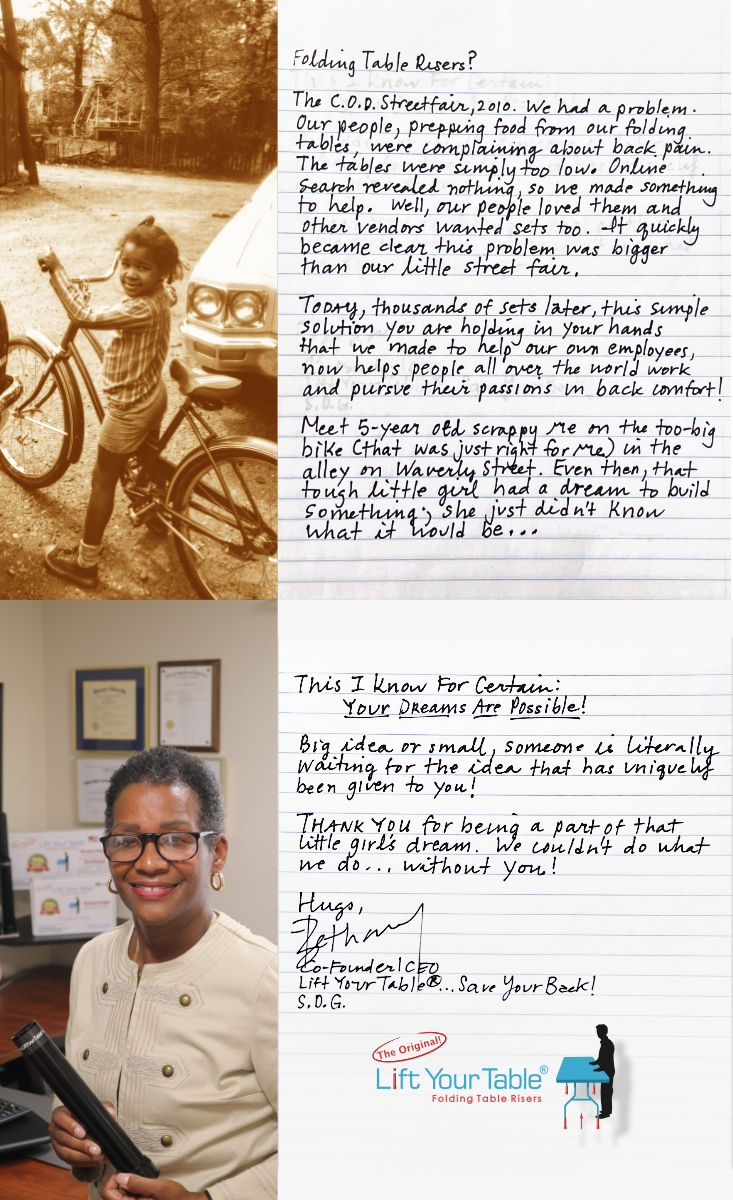 Folding Table Risers?
The C.O.D. Streetfair, 2010. We had a problem.
Our people, prepping food from our folding
tables, were complaining about back pain.
The tables were simply too low. Online
Search revealed nothing, so we made something
to help. Well, our people loved them and
other vendors wanted sets too. It quickly
became clear this problem was bigger
than our little street fair.
TODAY, thousands of sets later, this simple
solution you are holding in your hands
that we made to help our own employees,
now helps people all over the world work
and pursue their passions in back comfort!
Meet 5-year old scrappy me on the too-big
bike (that was just right for me) in the
alley on Waverly Street. Even then, that
tough little girl had a dream to build
something; she just didn't know
what it would be...
This I Know For Certain:
Your Dreams Are Possible!
Big idea or small, someone is literally
waiting for the idea that has uniquely
been given to you!
THANK YOU for being a part of that
little girl's dream. We couldn't do what
we do... without you!
Hugs,
Bethany
Co-Founder|CEO
Lift Your Table®...Save Your Back!
S.D.G.
The Original!
Lift Your Table®
Folding Table Risers
Lift Your Table
Lift Your Table